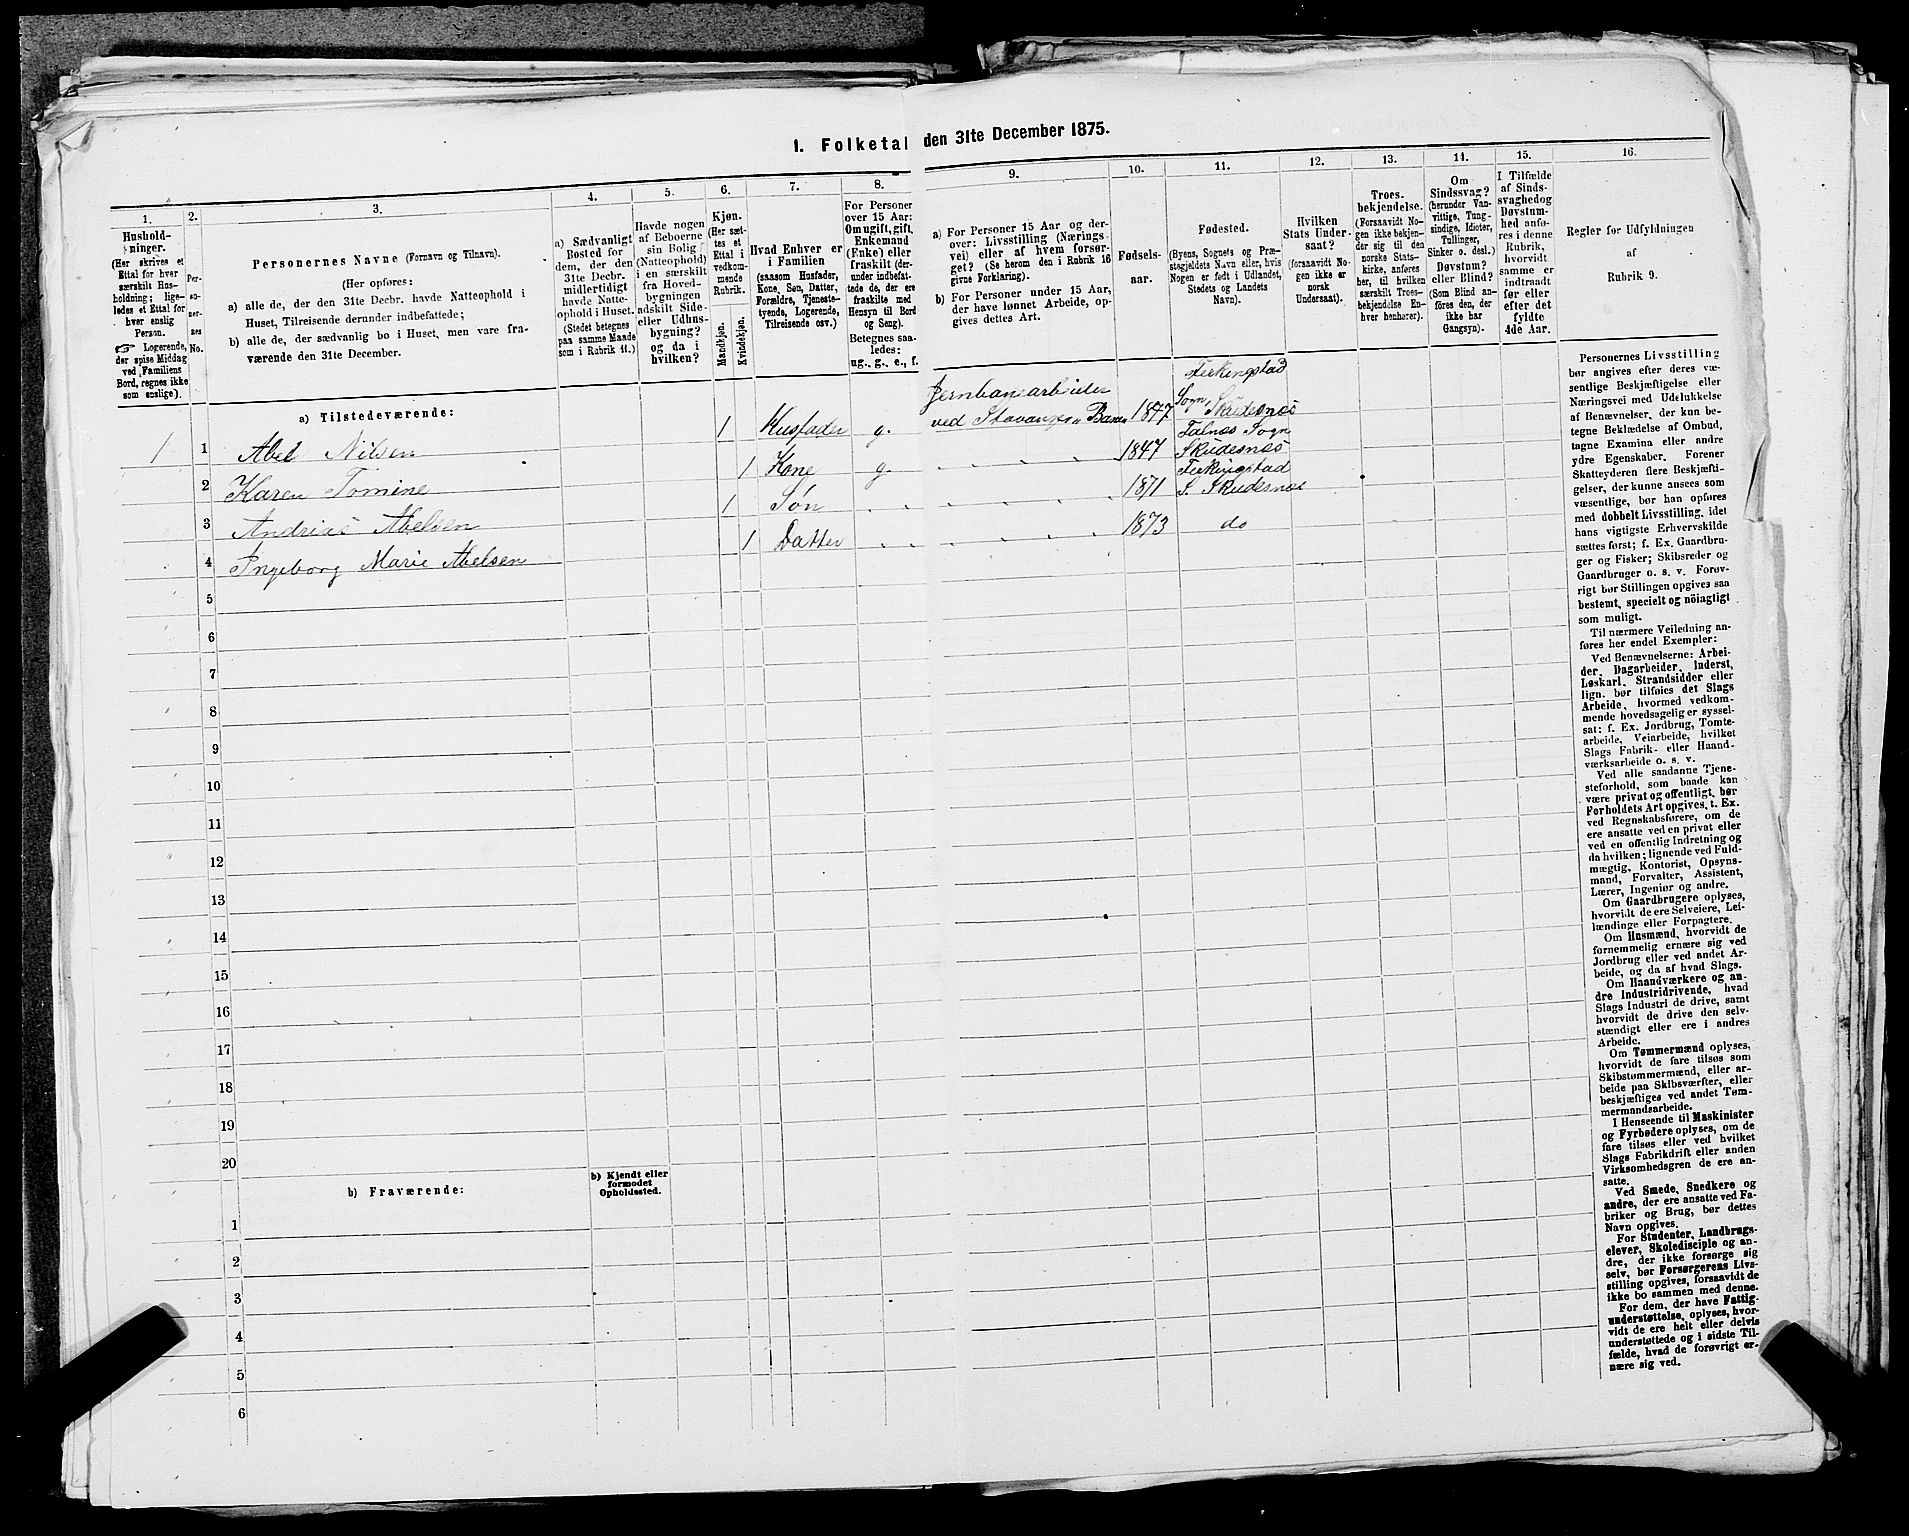 1. Folketal den 31te December 1875.
1.
Hushold-
ninger.
(Her skrives et
Ettal for hver
særskilt Hus-
holdning; lige-
ledes et Ettal for
hver enslig
Person.
☞ Logerende,
der spise Middag
ved Familiens
Bord, regnes ikke
som enslige).
2.
Per-
so-
ner-
nes
No.
3.
Personernes Navne (Fornavn og Tilnavn).
(Her opføres:
a) alle de, der den 31te Decbr. havde Natteophold i
Huset, Tilreisende derunder indbefattede;
b) alle de, der sædvanlig bo i Huset, men vare fra-
værende den 31te December.
4.
a) Sædvanligt
Bosted for
dem, der den
31te Decbr.
midlertidigt
havde Natte-
ophold i Huset.
(Stedet betegnes
paa samme Maade
som i Rubrik 11.)
5.
Havde nogen
af Beboerne
sin Bolig
(Natteophold)
i en særskilt
fra Hoved-
bygningen
adskilt Side-
eller Udhus-
bygning?
og da i
hvilken?
6.
Kjøn.
(Her sæt-
tes et
Ettal i
vedkom-
mende
Rubrik.
Mandkjøn.
Kvindekjøn.
7.
Hvad Enhver er
i Familien
(saasom Husfader,
Kone, Søn, Datter,
Forældre, Tjeneste-
tyende, Logerende,
Tilreisende osv.)
8.
For Personer
over 15 Aar:
Om ugift, gift,
Enkemand
(Enke) eller
fraskilt (der-
under indbefat-
tede de, der ere
fraskilte med
Hensyn til Bord
og Seng).
Betegnes saa-
ledes:
ug., g., e., f.
9.
a) For Personer 15 Aar og der-
over: Livsstilling (Nærings-
vei) eller af hvem forsør-
get? (Se herom den i Rubrik 16
givne Forklaring).
b) For Personer under 15 Aar,
der have lønnet Arbeide, op-
gives dettes Art.
10.
Fødsels-
aar.
11.
Fødested.
(Byens, Sognets og Præ-
stegjeldets Navn eller, hvis
Nogen er født i Udlandet,
Stedets og Landets
Navn).
12.
Hvilken
Stats Under-
saat?
(forsaavidt No-
gen ikke er
norsk
Undersaat).
13.
Troes-
bekjendelse.
(Forsaavidt No-
gen ikke bekjen-
der sig til den
norske Stats-
kirke, anføres
her, til hvilken
særskilt Troes-
bekjendelse En-
hver henhører).
14.
Om
Sindssvag?
(herunder Van-
vittige, Tung-
sindige, Idioter,
Tullinger,
Sinker o. desl.)
Døvstum?
eller Blind?
(Som Blind an-
føres den, der
ikke har
Gangsyn).
15.
I Tilfælde
af Sinds-
svaghed og
Døvstum-
hed anfø-
res i denne
Rubrik,
hvorvidt
samme er
indtraadt
før eller
efter det
fyldte
4de Aar.
16.
Regler for Udfyldningen
af
Rubrik 9.
a) Tilstedeværende:
1 1 Abel Nilsen 1 Husfader g. Jernbanearbeider ved Stavanger Banen 1847 Ferkingstad Sogn, Skudesnæs
2 Karen Tomine 1 Kone g. 1847 Falnæs Sogn Skudesnæs
3 Andrias Abelsen 1 Søn 1871 Ferkingstad S. Skudesnæs
4 Ingeborg Marie Abelsen 1 Datter 1873 do
5
6
7
8
9
10
11
12
13
14
15
16
17
18
19
20
b) Fraværende:
b) Kjendt eller
formodet
Opholdssted.
1
2
3
4
5
6
Personernes Livsstilling
bør angives efter deres væ-
sentlige Beskjæftigelse eller
Næringsvei med Udelukkelse
af Benævnelser, der kun be-
tegne Beklædelse af Ombud,
tagne Examina eller andre
ydre Egenskaber. Forener
Skatteyderen flere Beskjæfti-
gelser, der kunne ansees som
væsentlige, bør han opføres
med dobbelt Livsstilling, idet
hans vigtigste Erhvervskilde
sættes først; f. Ex. Gaardbru-
ger og Fisker; Skibsreder og
Gaardbruger o. s. v. Forøv-
rigt bør Stillingen opgives saa
bestemt, specielt og nöiagtigt
som muligt.
Til nærmere Veiledning an-
føres her endel Exempler:
Ved Benævnelserne: Arbei-
der, Dagarbeider, Inderst,
Løskarl, Strandsidder eller
lign. bør tilføies det Slags
Arbeide, hvormed vedkom-
mende hovedsagelig er syssel-
sat: f. Ex. Jordbrug, Tomte-
arbeide, Veiarbeide, hvilket
Slags Fabrik- eller Haand-
værksarbeide o. s. v.
Ved alle saadanne Tjene-
steforhold, som baade kan
være privat og offentligt, bør
Forholdets Art opgives, t. Ex.
ved Regnskabsførere, om de
ere ansatte ved en privat eller
ved en offentlig Indretning og
da hvilken; lignende ved Fuld-
mægtig, Kontorist, Opsyns-
mand, Forvalter, Assistent,
Lærer, Ingeniør og andre.
Om Gaardbrugere oplyses,
hvorvidt de ere Selveiere, Lei-
lændinge eller Forpagtere.
Om Husmænd, hvorvidt de
fornemmelig ernære sig ved
Jordbrug eller ved andet Ar-
beide, og da af hvad Slags.
Om Haandværkere og an-
dre Industridrivende, hvad
Slags Industri de drive, samt
hvorvidt de drive den selv-
stændigt eller ere i andres
Arbeide.
Om Tømmermænd oplyses,
hvorvidt de fare tilsøs som
Skibstømmermænd, eller ar-
beide paa Skibsværfter, eller
beskjæftiges ved andet Tøm-
mermandsarbeide.
I Henseende til Maskinister
og Fyrbødere oplyses, om de
fare tilsøs eller ved hvilket
Slags Fabrikdrift eller anden
Virksomhedsgren de ere an-
satte.
Ved Smede, Snedkere og
andre, der ere ansatte ved Fa-
briker og Brug, bør dettes
Navn opgives.
For Studenter, Landbrugs-
elever, Skoledisciple og an-
dre, der ikke forsørge sig
selv, bør Forsørgerens Livs-
stilling opgives, forsaavidt de
ikke bo sammen med denne.
For dem, der have Fattig-
understøttelse, oplyses, hvor-
vidt de ere helt eller delvis
understøttede og i sidste Til-
fælde, hvad de forøvrigt er-
nære sig ved.